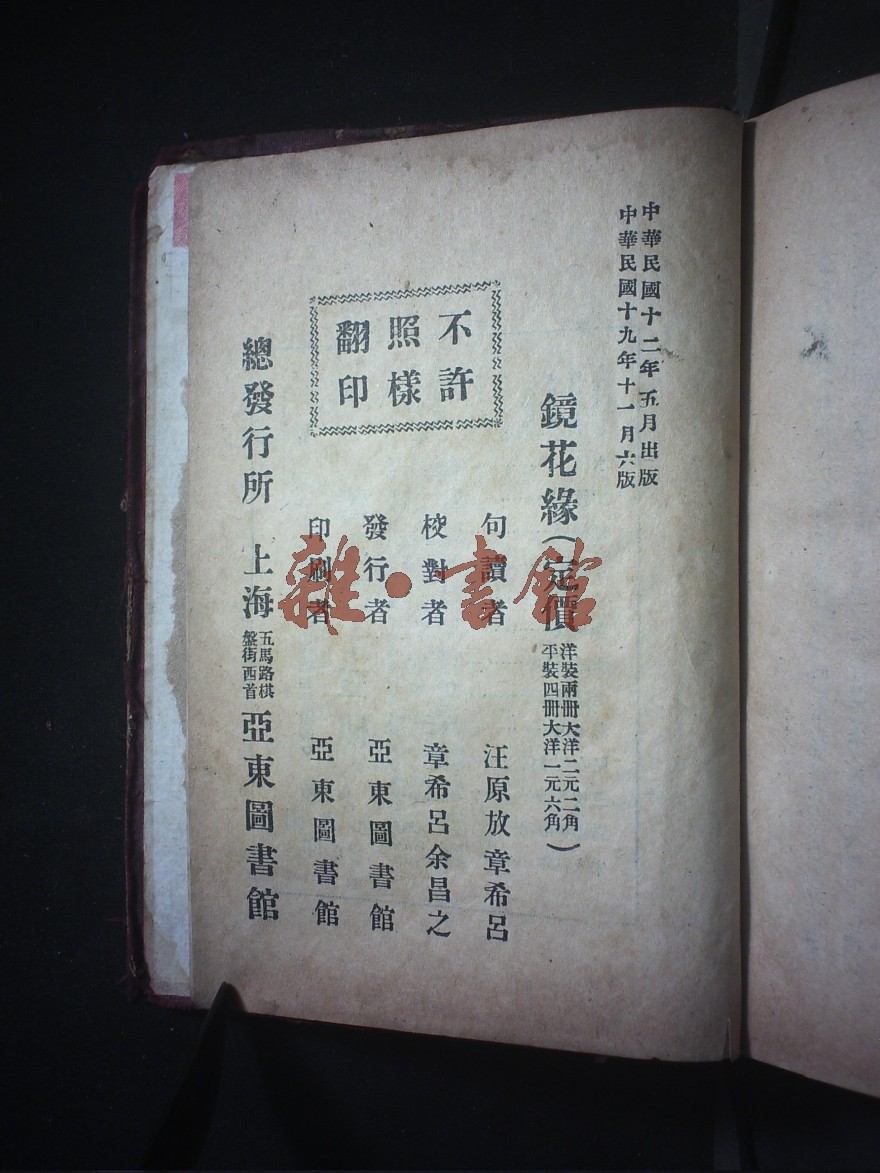 中華民國十二年五月出版
中華民國十九年十一月六版
鏡花緣（定價洋裝兩冊大洋二元二角
平裝四冊大洋一元六角）
不許
照樣
翻印
句讀者 汪原放章希呂
校對者 章希呂余昌之
發行者 亞東圖書館
印刷者 亞東圖書館
總發行所 上海五馬路棋
盤街西首亞東圖書館
雜·書館